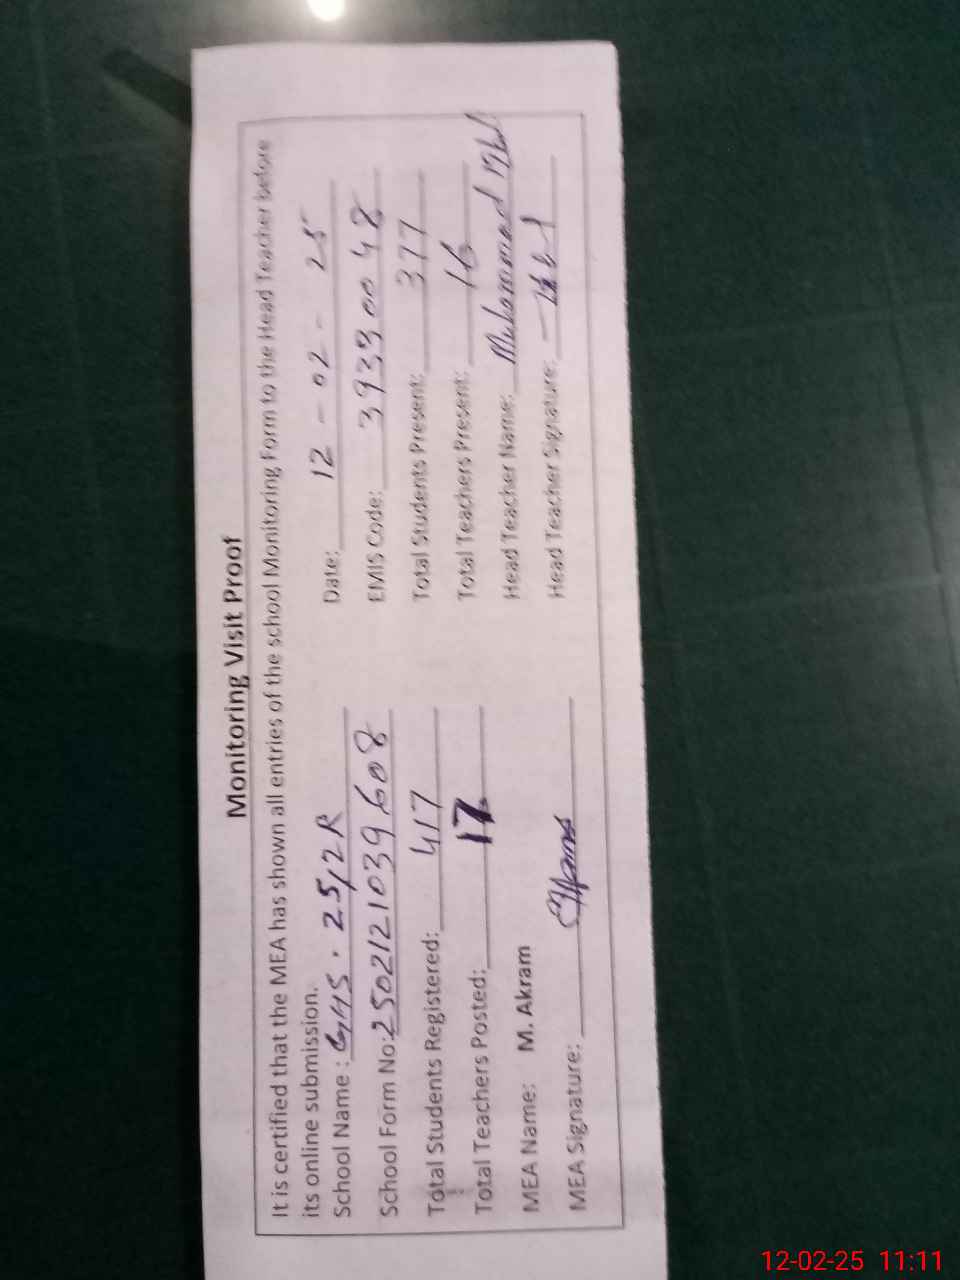 Monitoring Visit Proof
It is certified that the MEA has shown all entries of the school Monitoring Form to the Head Teacher before
its online submission.
School Name : GHS . 25/2R Date: 12 - 02 - 25
School Form No: 2502121039608 EMIS Code: 39390048
Total Students Registered: 417 Total Students Present: 377
Total Teachers Posted: 17 Total Teachers Present: 16
MEA Name: M. Akram Head Teacher Name: Muhammad
MEA Signature: Head Teacher Signature:
12-02-25 11:11